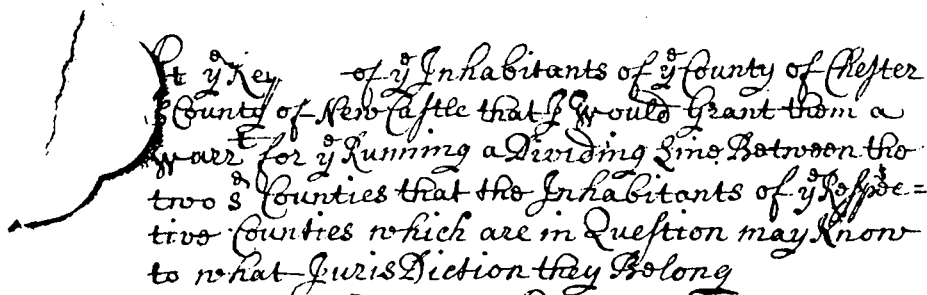 At yᵉ Req of yᵉ Inhabitants of yᵉ County of Chester
County of New Castle that I Would Grant them a
Warrᵗ for yᵉ Running a Dividing Line Between the
two sᵈ Counties that the Inhabitants of yᵉ Respec=
tive Counties which are in Question may Know
to what JurisDiction they Belong